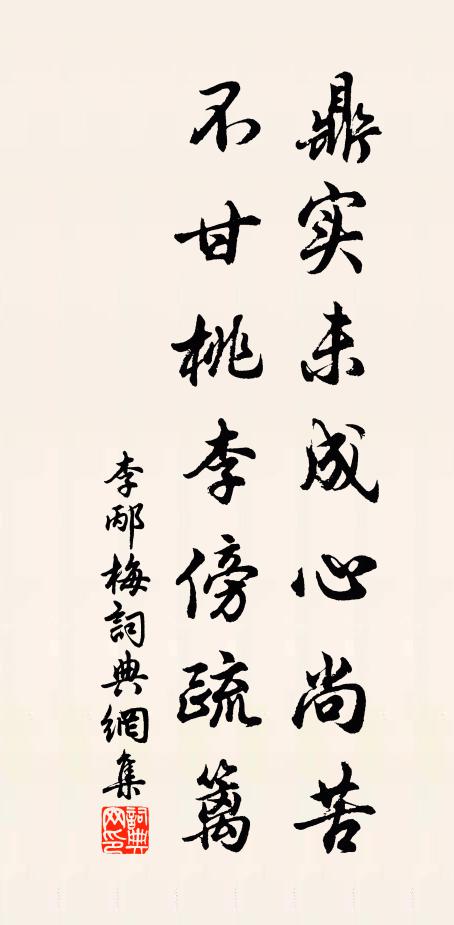 鼎实未成心尚苦
不甘桃李傍疏篱
李邴梅詞典網集
詞典
网印